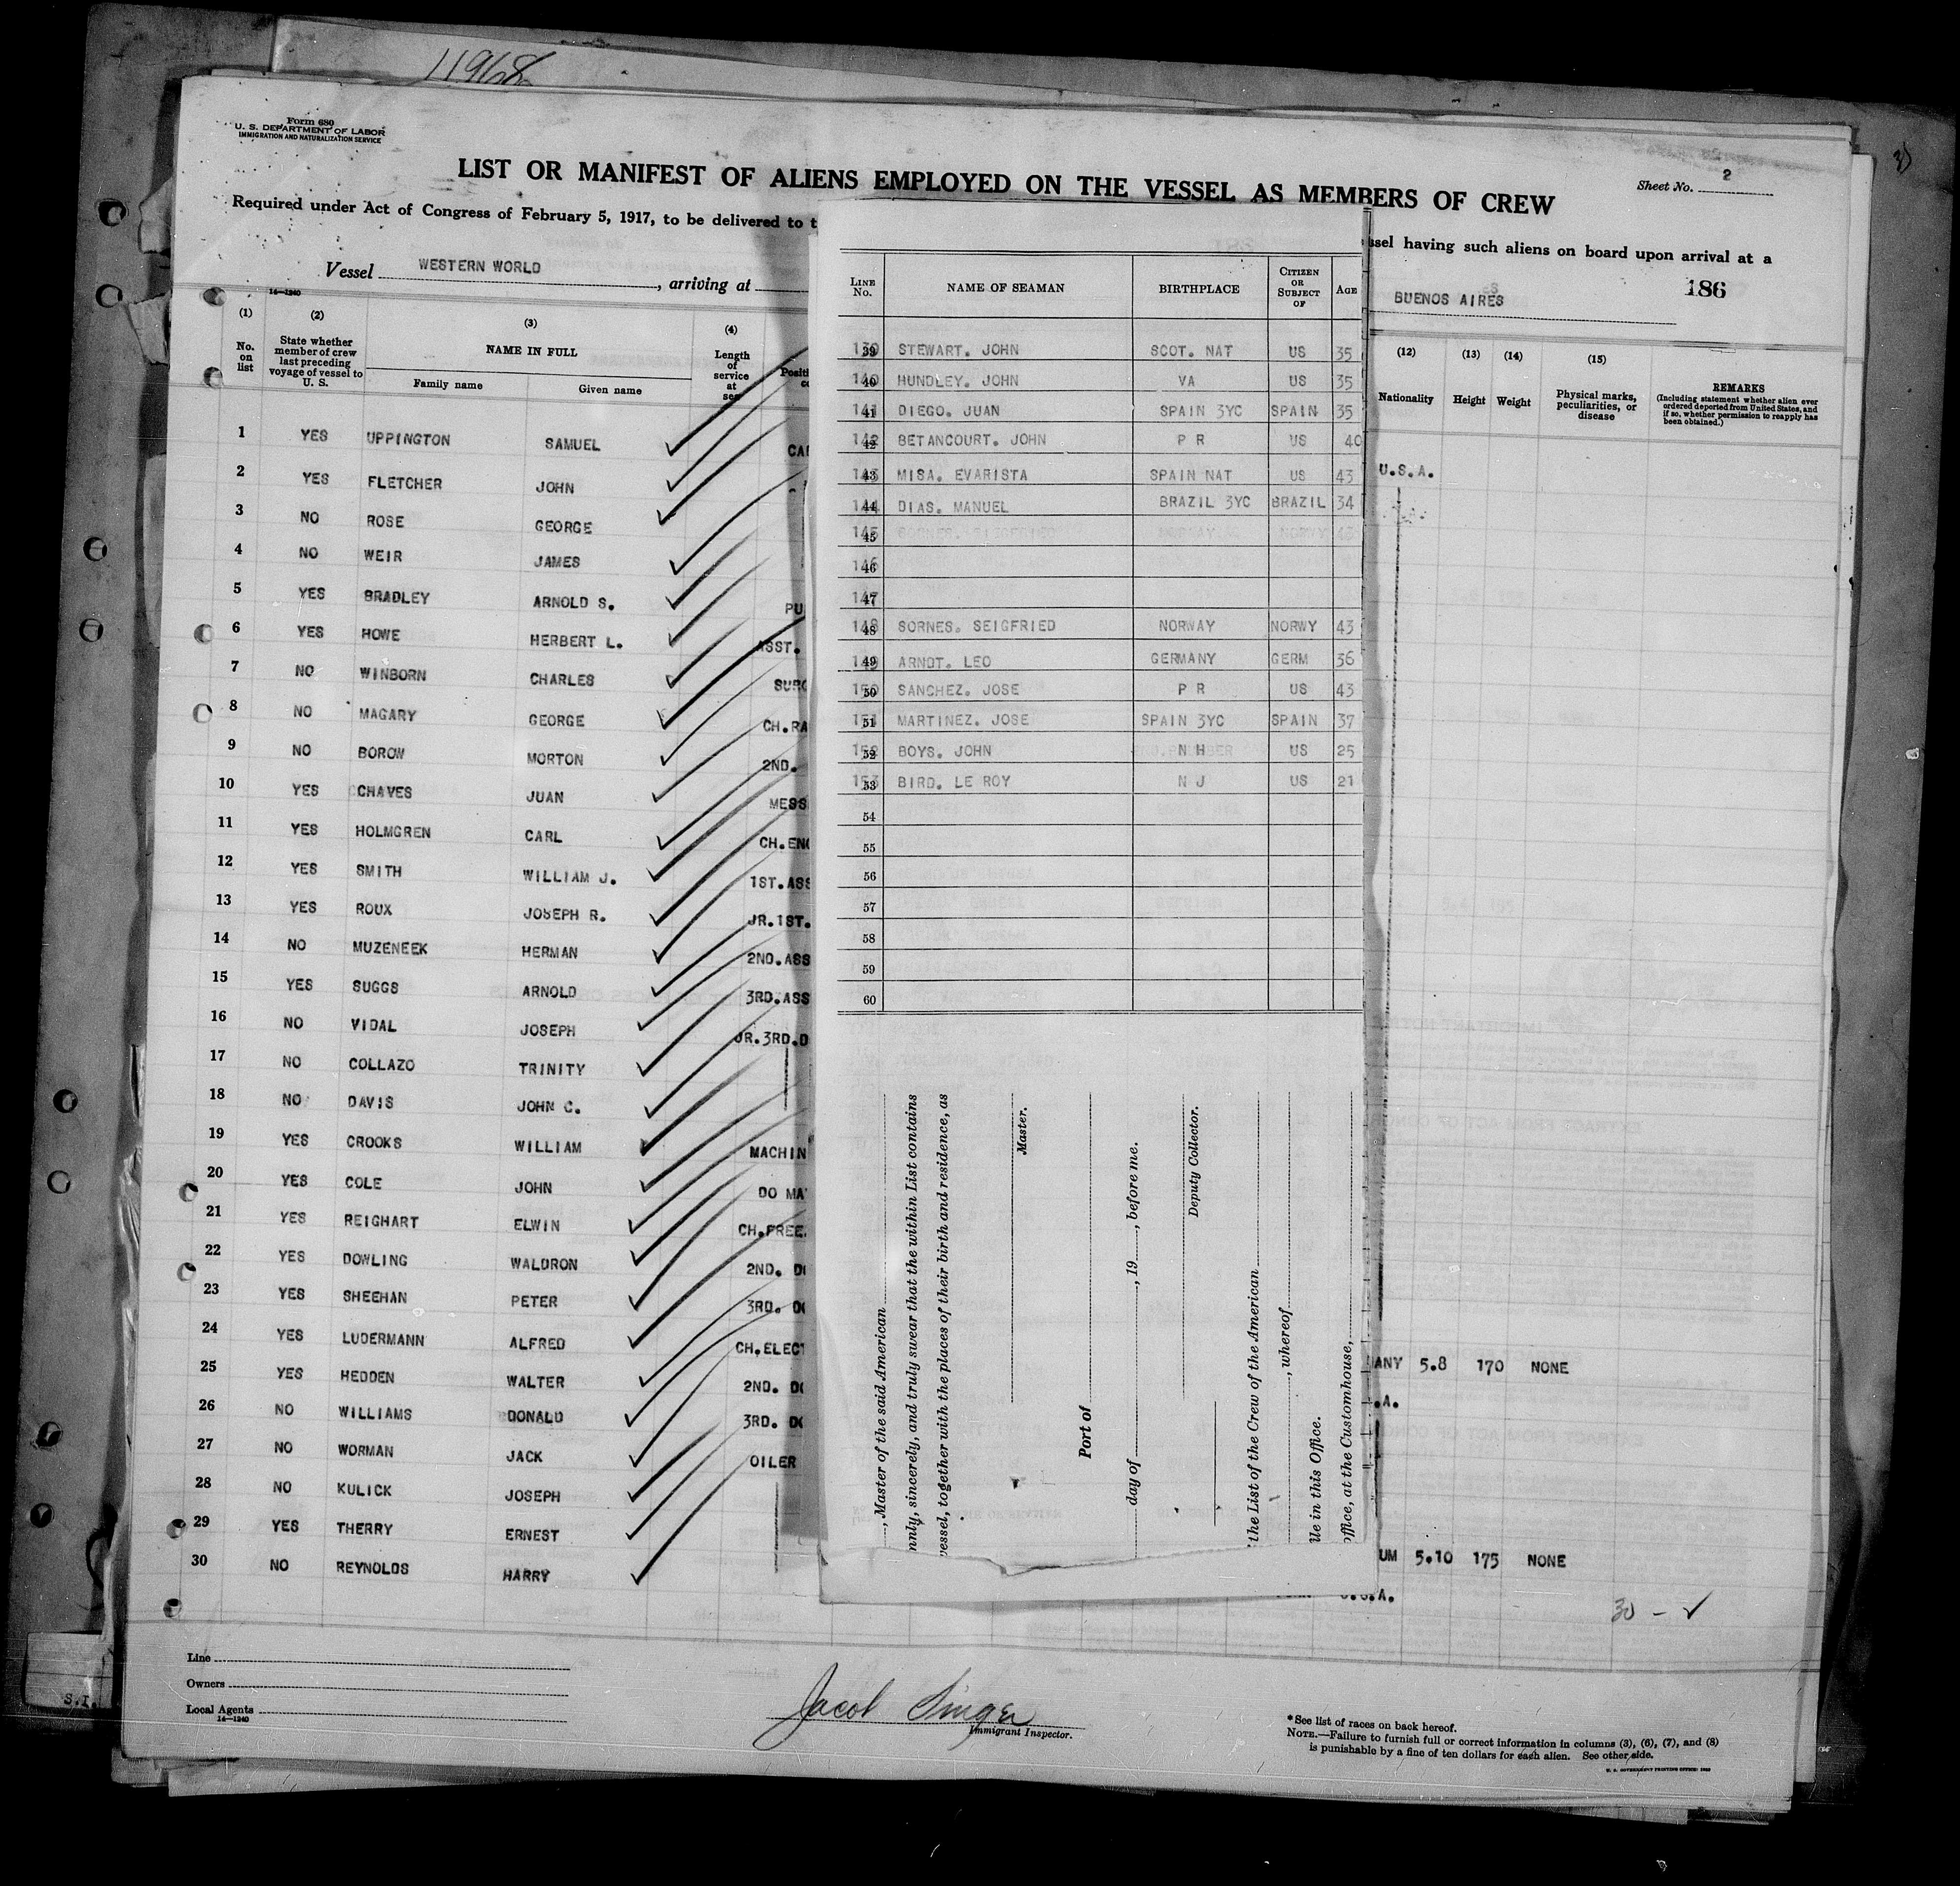 11968
Form 680
U. S. DEPARTMENT OF LABOR
IMMIGRATION AND NATURALIZATION SERVICE
LIST OR MANIFEST OF ALIENS EMPLOYED ON THE VESSEL AS MEMBERS OF CREW
Sheet No. 2
Required under Act of Congress of February 5, 1917, to be delivered to t
ssel having such aliens on board upon arrival at a
Vessel WESTERN WORLD, arriving at
BUENOS AIRES
186
14—1240
(1) (2) (3) (4)
No. on list
State whether member of crew last preceding voyage of vessel to U. S.
NAME IN FULL
Family name Given name
Length of service at sea
Positi
(12) (13) (14) (15)
Nationality Height Weight
Physical marks, peculiarities, or disease
REMARKS
(Including statement whether alien ever ordered deported from United States, and if so, whether permission to reapply has been obtained.)
1 YES UPPINGTON SAMUEL U.S.A.
2 YES FLETCHER JOHN
3 NO ROSE GEORGE
4 NO WEIR JAMES
5 YES BRADLEY ARNOLD S. PU
6 YES HOWE HERBERT L. ASST.
7 NO WINBORN CHARLES SURG
8 NO MAGARY GEORGE CH.RA
9 NO BOROW MORTON 2ND.
10 YES CHAVES JUAN MESS
11 YES HOLMGREN CARL CH.ENG
12 YES SMITH WILLIAM J. 1ST.ASS
13 YES ROUX JOSEPH R. JR.1ST.
14 NO MUZENEEK HERMAN 2ND.ASS
15 YES SUGGS ARNOLD 3RD.ASS
16 NO VIDAL JOSEPH JR.3RD.D
17 NO COLLAZO TRINITY
18 NO DAVIS JOHN C.
19 YES CROOKS WILLIAM MACHIN
20 YES COLE JOHN DO MA
21 YES REIGHART ELWIN CH.FREE.
22 YES DOWLING WALDRON 2ND. DO
23 YES SHEEHAN PETER 3RD. DO
24 YES LUDERMANN ALFRED CH.ELECT ANY 5.8 170 NONE
25 YES HEDDEN WALTER 2ND. DO .A.
26 NO WILLIAMS DONALD 3RD. DO
27 NO WORMAN JACK OILER
28 NO KULICK JOSEPH
29 YES THERRY ERNEST UM 5.10 175 NONE
30 NO REYNOLDS HARRY .A.
30 – ✓
LINE No. NAME OF SEAMAN BIRTHPLACE CITIZEN OR SUBJECT OF AGE
39 STEWART. JOHN SCOT. NAT US 35
40 HUNDLEY. JOHN VA US 35
41 DIEGO. JUAN SPAIN 3YC SPAIN 35
42 BETANCOURT. JOHN P R US 40
43 MISA. EVARISTA SPAIN NAT US 43
44 DIAS. MANUEL BRAZIL 3YC BRAZIL 34
45
46
47
48 SORNES. SEIGFRIED NORWAY NORWY 43
49 ARNDT. LEO GERMANY GERM 36
50 SANCHEZ. JOSE P R US 43
51 MARTINEZ. JOSE SPAIN 3YC SPAIN 37
52 BOYS. JOHN N H US 25
53 BIRD. LE ROY N J US 21
54
55
56
57
58
59
60
, Master of the said American
mnly, sincerely, and truly swear that the within List contains
vessel, together with the places of their birth and residence, as
Master.
Port of
day of , 19 , before me.
Deputy Collector.
the List of the Crew of the American
, whereof
ile in this Office.
office, at the Customhouse,
Line
Owners
Local Agents
14—1240
Jacob Singer
Immigrant Inspector.
*See list of races on back hereof.
NOTE.—Failure to furnish full or correct information in columns (3), (6), (7), and (8)
is punishable by a fine of ten dollars for each alien. See other side.
S.I.